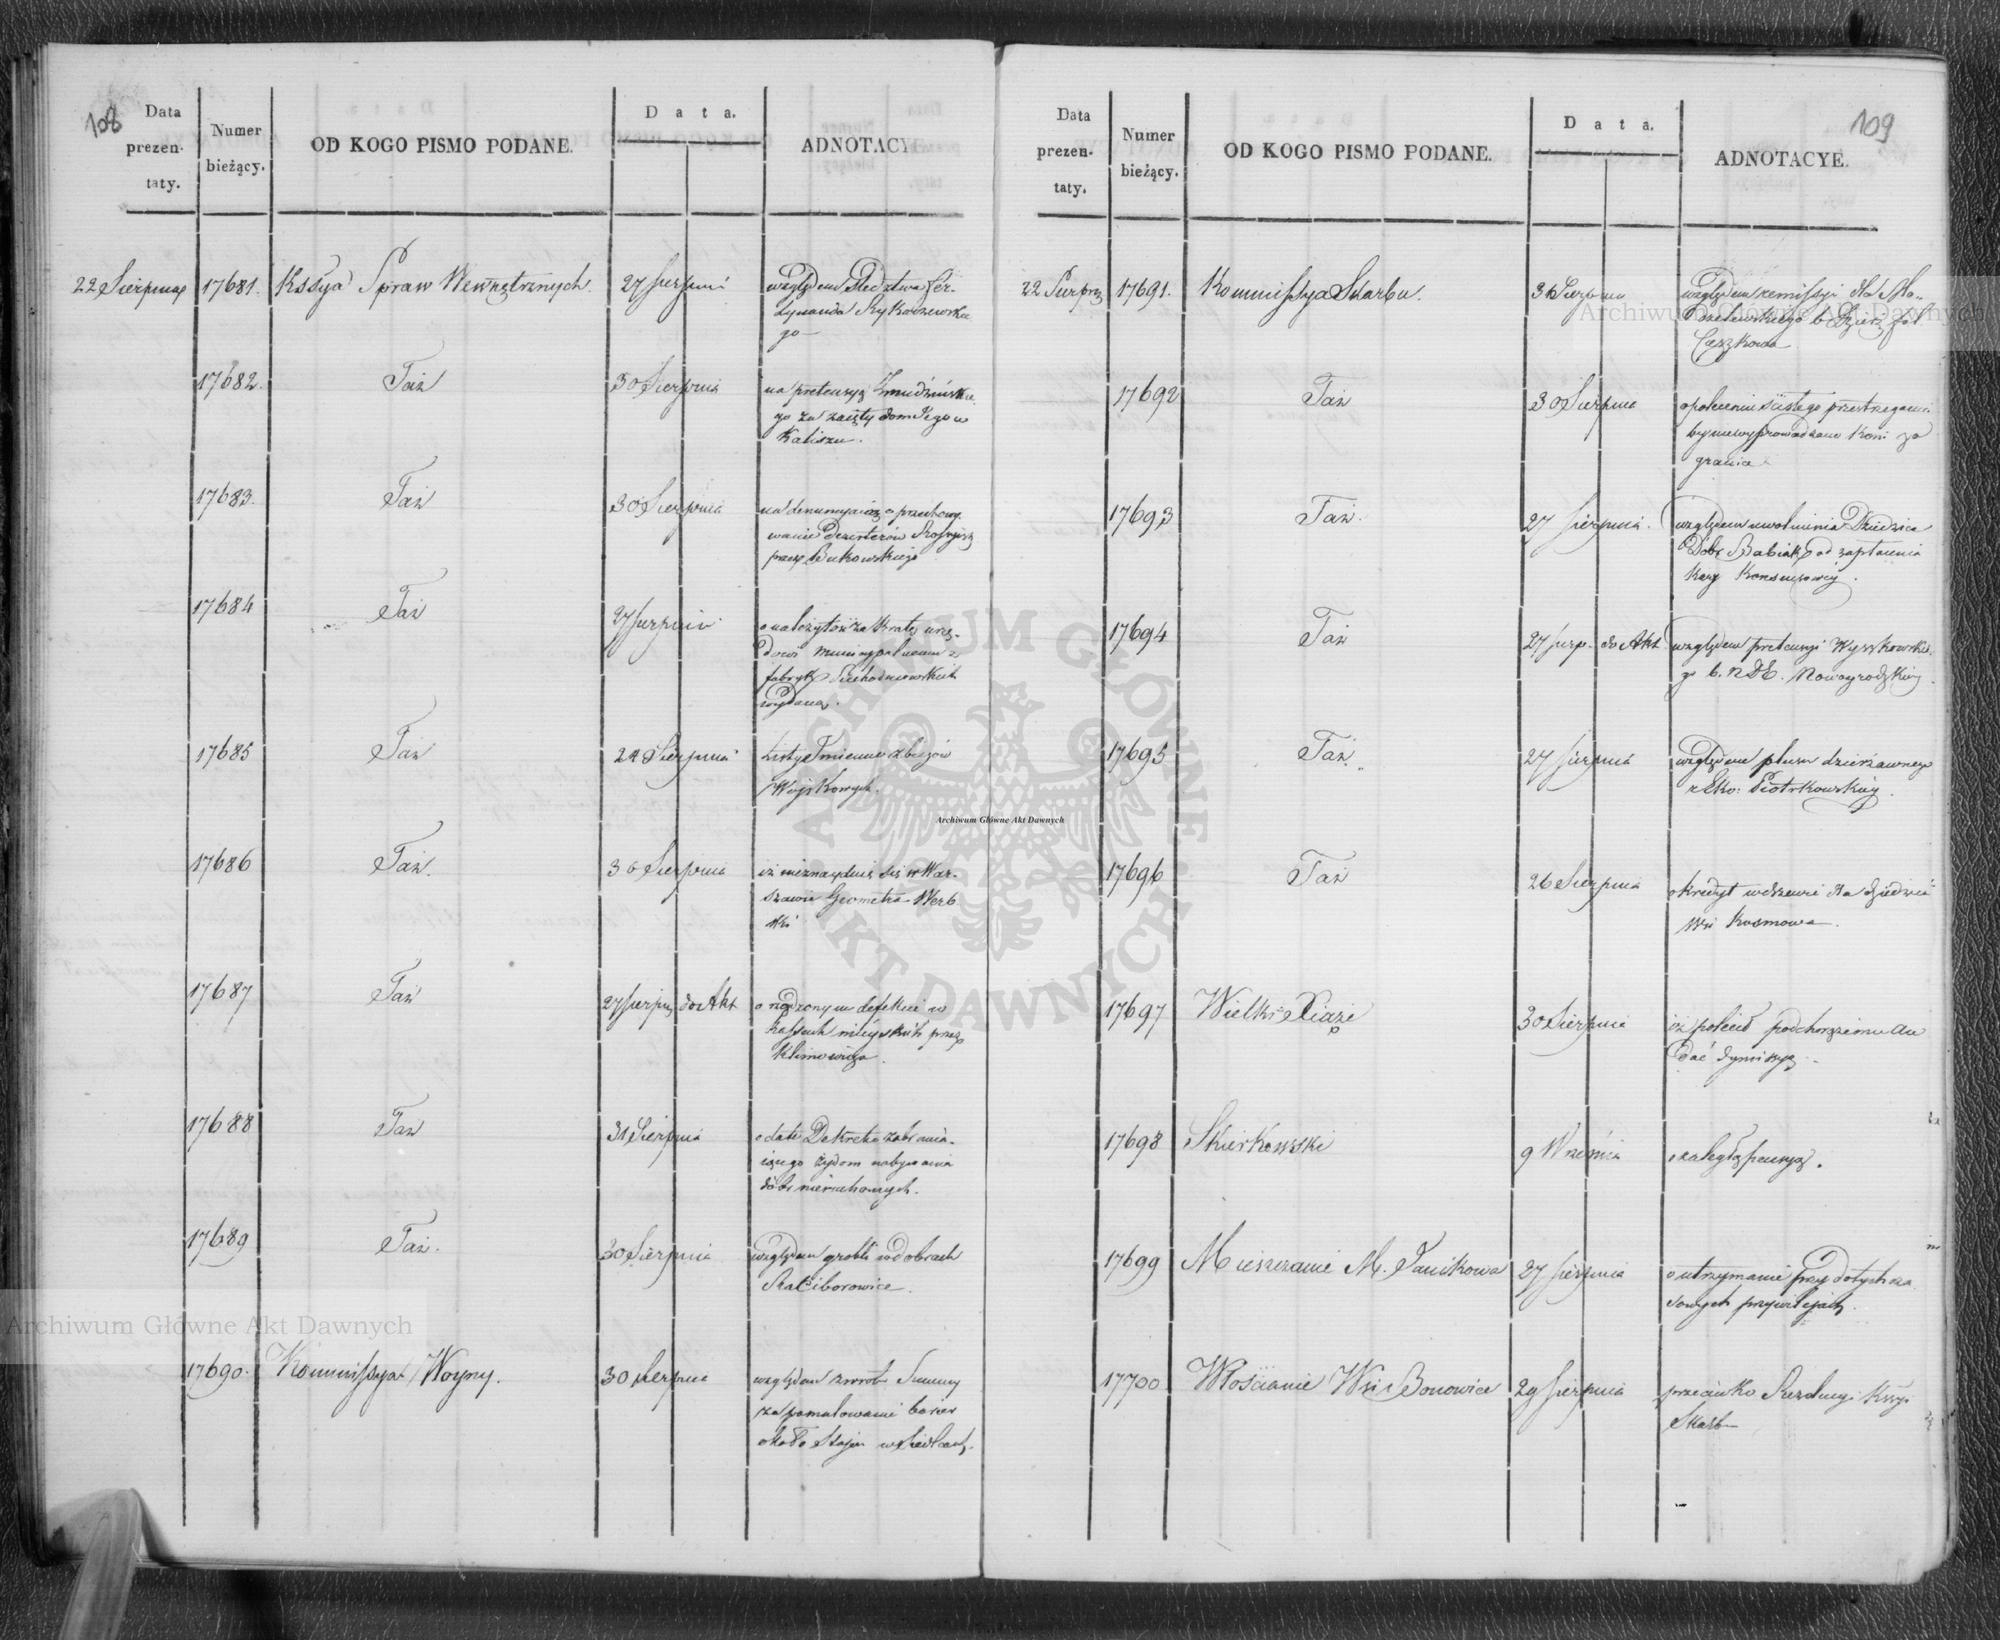 108
Data prezen- taty.
Numer bieżący.
OD KOGO PISMO PODANE.
Data.
ADNOTACY
22 Sierpnia 17681. Kssya Spraw Wewnętrznych. 27 Sierpnia względem śledztwa Fer-
dynanda Rykaczewskie
go
17682. Taż 30 Sierpnia na pretensyą Żmudzińskie
go za zajęty dom Jego w
Kaliszu.
17683. Taż 30 Sierpnia na denuncyacyą o przechowy
wanie Dezerterów Rossyisk
przez Bukowskiego
17684 Taż 27 Sierpnia o należytość za Kratę urzę-
dowi municypalnemu z
fabryk Suchedniowskich
wydaną.
17685 Taż 24 Sierpnia Listy Imienne zbiegów
Wojskowych.
17686 Taż. 30 Sierpnia iż nieznayduie się w War-
szawie Geometra Werb
ski
17687 Taż 27 Sierpn do Akt o rządzonym defekcie w
Kassach mieyskich przez
Klimowicza.
17688 Taż 31 Sierpnia o datę Dekretu zabrania-
iącego żydom nabywania
dóbr nieruchomych.
17689 Taż. 30 Sierpnia względem grobli w dobrach
Raciborowice.
17690. Kommissya Woyny. 30 Sierpnia względem zwrotu Summy
za pomalowanie barier
około Stajen w Siedlcach.
109
Data prezen- taty.
Numer bieżący.
OD KOGO PISMO PODANE.
Data.
ADNOTACYE.
22 Sierpn 17691. Kommissya Skarbu. 31 Sierpnia względem remissyi dla Ma-
szelewskiego b. Dzierż fol
Cęszkowa
17692 Taż 30 Sierpnia o polecenie ścisłego przestrzegania
by niewyprowadzano koni za
granicę
17693 Taż. 27 Sierpnia. względem uwolnienia Dziedzica
Dóbr Babiak od zapłacenia
kary Konsensowey.
17694 Taż 27 Sierp. do Akt względem pretensyi Wyszkowskie
go b. N. D. E. Nowogrodzkiey
17695 Taż. 27 Sierpnia względem plusu dzierżawnego
z Eko: Piotrkowskiey.
17696 Taż 26 Sierpnia o kredyt w drzewie dla dziedzica
Wsi Kosmowa.
17697 Wielki Xiąże 30 Sierpnia iż polecił podchorążemu Au
dać dymissyą.
17698 Skierkowski 9 Września o zaległą pensyą.
17699 Mieszczanie M. Janikowa 27 Sierpnia o utrzymanie przy dotychcza
sowych przywilejach.
17700 Włościanie Wsi Bonowice 29 Sierpnia przeciwko Rezolucyi Kssyi
Skarbu
Archiwum Główne Akt Dawnych
ARCHIWUM GŁÓWNE AKT DAWNYCH
Archiwum Główne Akt Dawnych
Archiwum Główne Akt Dawnych